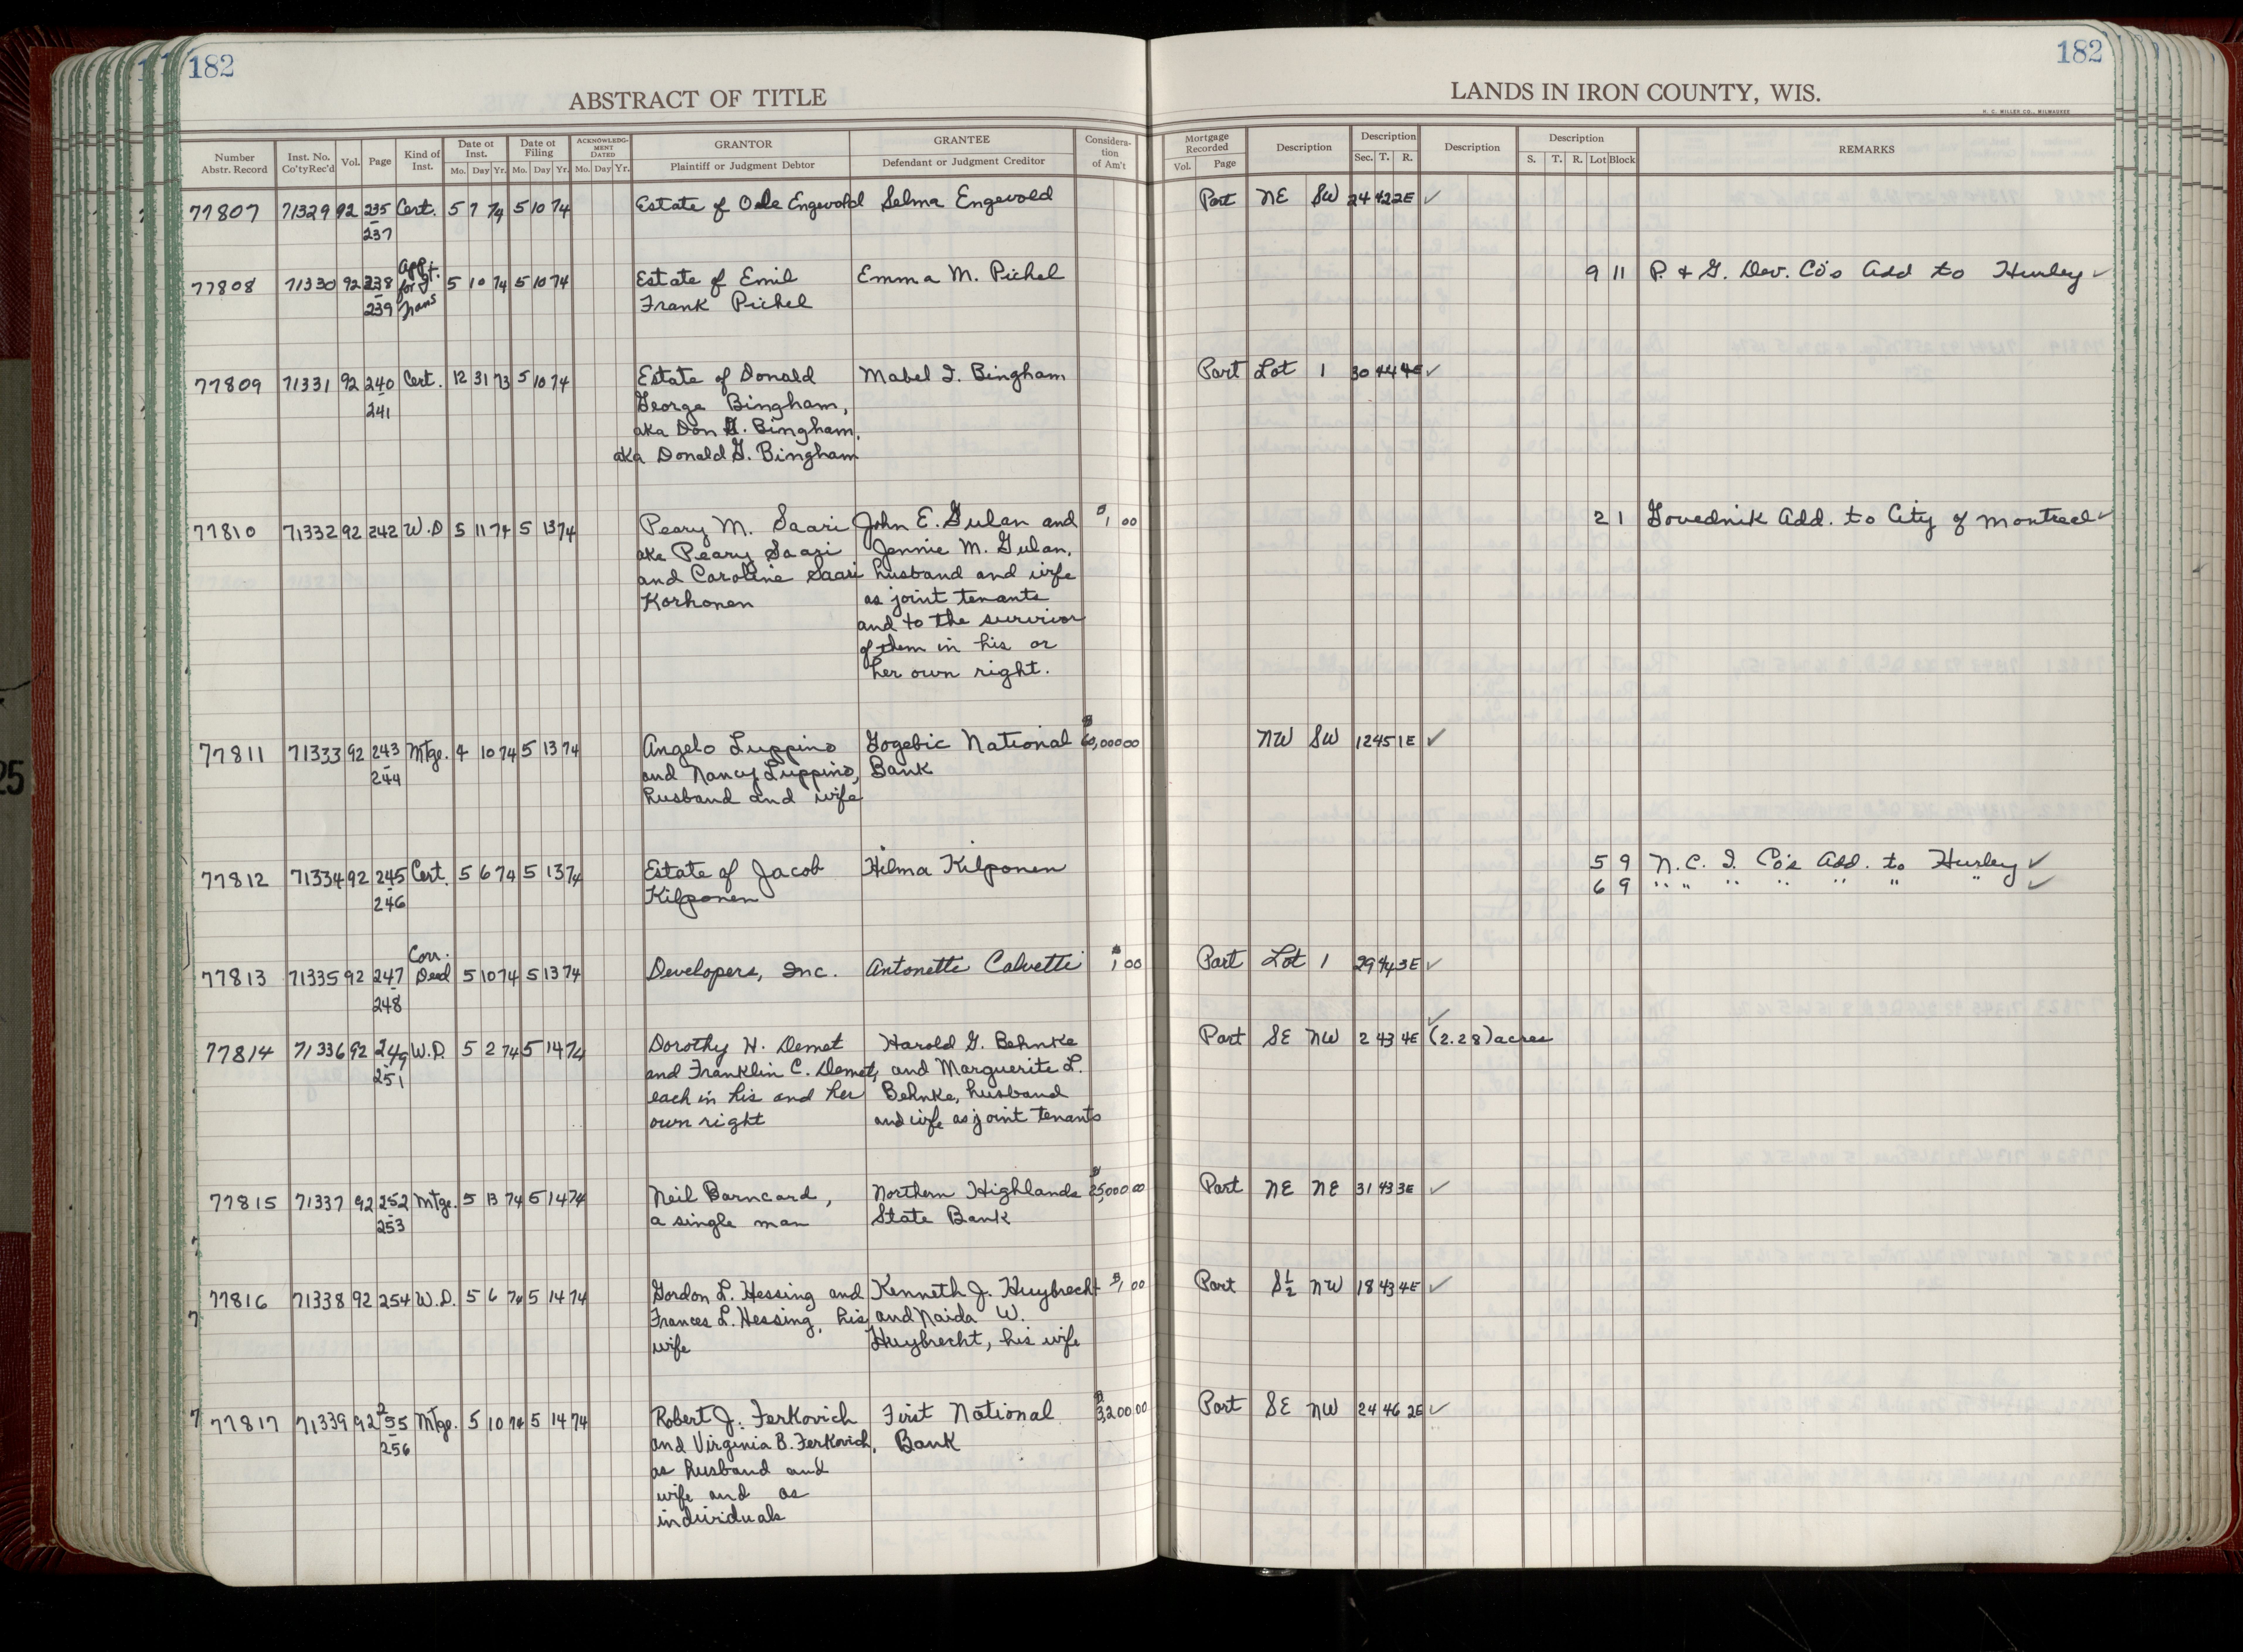 182
ABSTRACT OF TITLE
Number Abstr. Record
Inst. No. Co'tyRec'd
Vol.
Page
Kind of Inst.
Date of Inst.
Mo. Day Yr.
Date of Filing
Mo. Day Yr.
ACKNOWLEDG-MENT DATED
Mo. Day Yr.
GRANTOR
Plaintiff or Judgment Debtor
GRANTEE
Defendant or Judgment Creditor
Considera-tion of Am't
182
LANDS IN IRON COUNTY, WIS.
H. C. MILLER CO., MILWAUKEE
Mortgage Recorded
Vol. Page
Description
Description
Sec. T. R.
Description
Description
S. T. R. Lot Block
REMARKS
77807 71329 92 235 Cert. 5 7 74 5 10 74 Estate of Engevold Selma Engevold Part NE SW 24 42 2E ✓
237
77808 71330 92 238 App. for Trans 5 10 74 5 10 74 Estate of Emil Emma M. Pichel 9 11 P. & G. Dev. Co's Add to Hurley ✓
239 Frank Pichel
77809 71331 92 240 Cert. 12 31 73 5 10 74 Estate of Donald Mabel I. Bingham Part Lot 1 30 44 4E ✓
241 George Bingham,
aka Don G. Bingham,
aka Donald G. Bingham
77810 71332 92 242 W.D 5 11 74 5 13 74 Peary M. Saari John E. Gulan and $1 00 2 1 Govednik Add. to City of Montreal ✓
aka Peary Saari Jennie M. Gulan,
and Caroline Saari husband and wife
Korhonen as joint tenants
and to the survivor
of them in his or
her own right.
77811 71333 92 243 Mtge. 4 10 74 5 13 74 Angelo Luppino Gogebic National $60,000 00 NW SW 12 45 1E ✓
244 and Nancy Luppino, Bank
husband and wife
77812 71334 92 245 Cert. 5 6 74 5 13 74 Estate of Jacob Hilma Kilponen 5 9 N. C. I. Co's Add. to Hurley ✓
246 Kilponen 6 9 " " " " " " " ✓
77813 71335 92 247 Corr. Deed 5 10 74 5 13 74 Developers, Inc. Antonette Calvetti $1 00 Part Lot 1 29 44 3E ✓
248
77814 71336 92 249 W.D. 5 2 74 5 14 74 Dorothy H. Demet Harold G. Behnke Part SE NW 2 43 4E (2.28) acres ✓
251 and Franklin C. Demet, and Marguerite L.
each in his and her Behnke, husband
own right and wife as joint tenants
77815 71337 92 252 Mtge. 5 13 74 5 14 74 Neil Barncard, Northern Highlands $25,000 00 Part NE NE 31 43 3E ✓
253 a single man State Bank
77816 71338 92 254 W.D. 5 6 74 5 14 74 Gordon L. Hessing and Kenneth J. Huybrecht $1 00 Part S½ NW 18 43 4E ✓
Frances L. Hessing, his and Naida W.
wife Huybrecht, his wife
77817 71339 92 255 Mtge. 5 10 74 5 14 74 Robert J. Ferkovich First National $3,200 00 Part SE NW 24 46 2E ✓
256 and Virginia B. Ferkovich, Bank
as husband and
wife and as
individuals